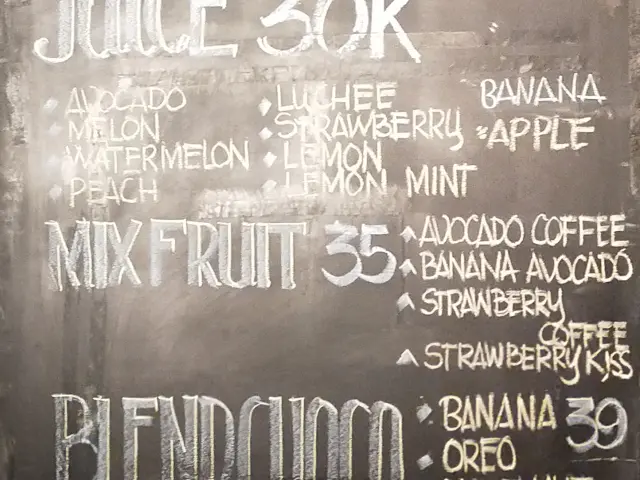 JUICE 30K
AVOCADO
MELON
WATERMELON
PEACH
LUCHEE
STRAWBERRY
LEMON
LEMON MINT
BANANA
APPLE
MIX FRUIT 35
AVOCADO COFFEE
BANANA AVOCADO
STRAWBERRY
COFFEE
STRAWBERRY KISS
BLEND CHOCO
BANANA 39
OREO